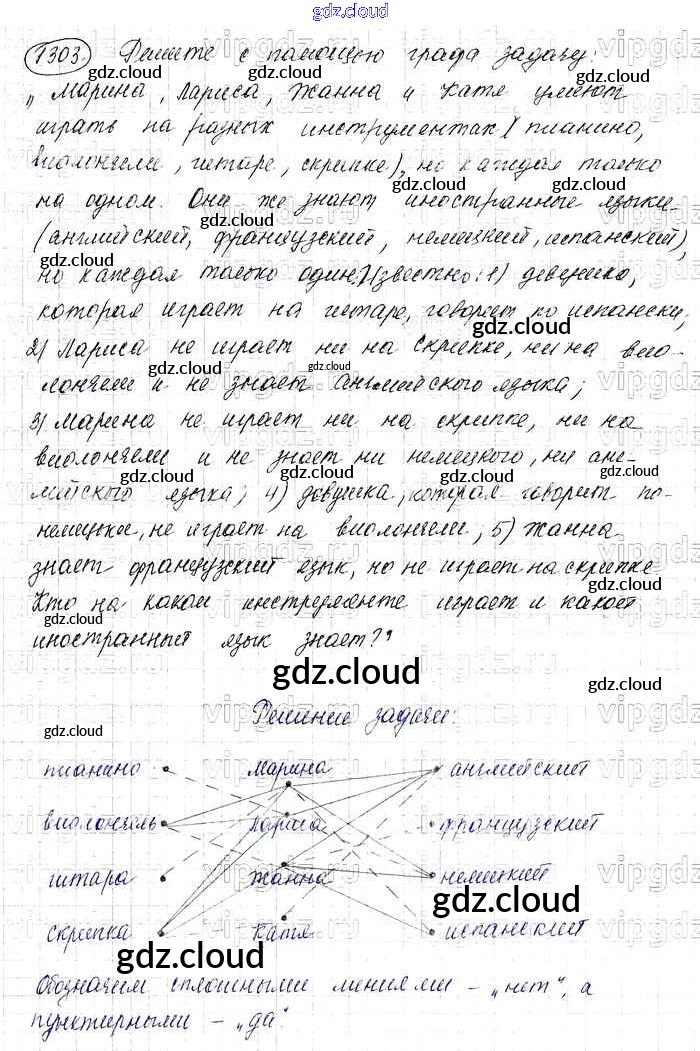 gdz.cloud
1303. Решите с помощью графа задачу:
„Марина, Лариса, Жанна и Катя умеют
играть на разных инструментах (пианино,
виолончели, гитаре, скрипке), но каждая только
на одном. Они же знают иностранные языки
(английский, французский, немецкий, испанский),
но каждая только один. Известно: 1) девушка,
которая играет на гитаре, говорит по испански;
2) Лариса не играет ни на скрипке, ни на вио-
лончели и не знает английского языка;
3) Марина не играет ни на скрипке, ни на
виолончели и не знает ни немецкого, ни анг-
лийского языка; 4) девушка, которая говорит по-
немецки, не играет на виолончели; 5) Жанна
знает французский язык, но не играет на скрипке.
Кто на каком инструменте играет и какой
иностранный язык знает?"
gdz.cloud
Решение задачи:
пианино Марина английский
виолончель Лариса французский
гитара Жанна немецкий
скрипка Катя испанский
gdz.cloud
Обозначим сплошными линиями – „нет", а
пунктирными – „да".